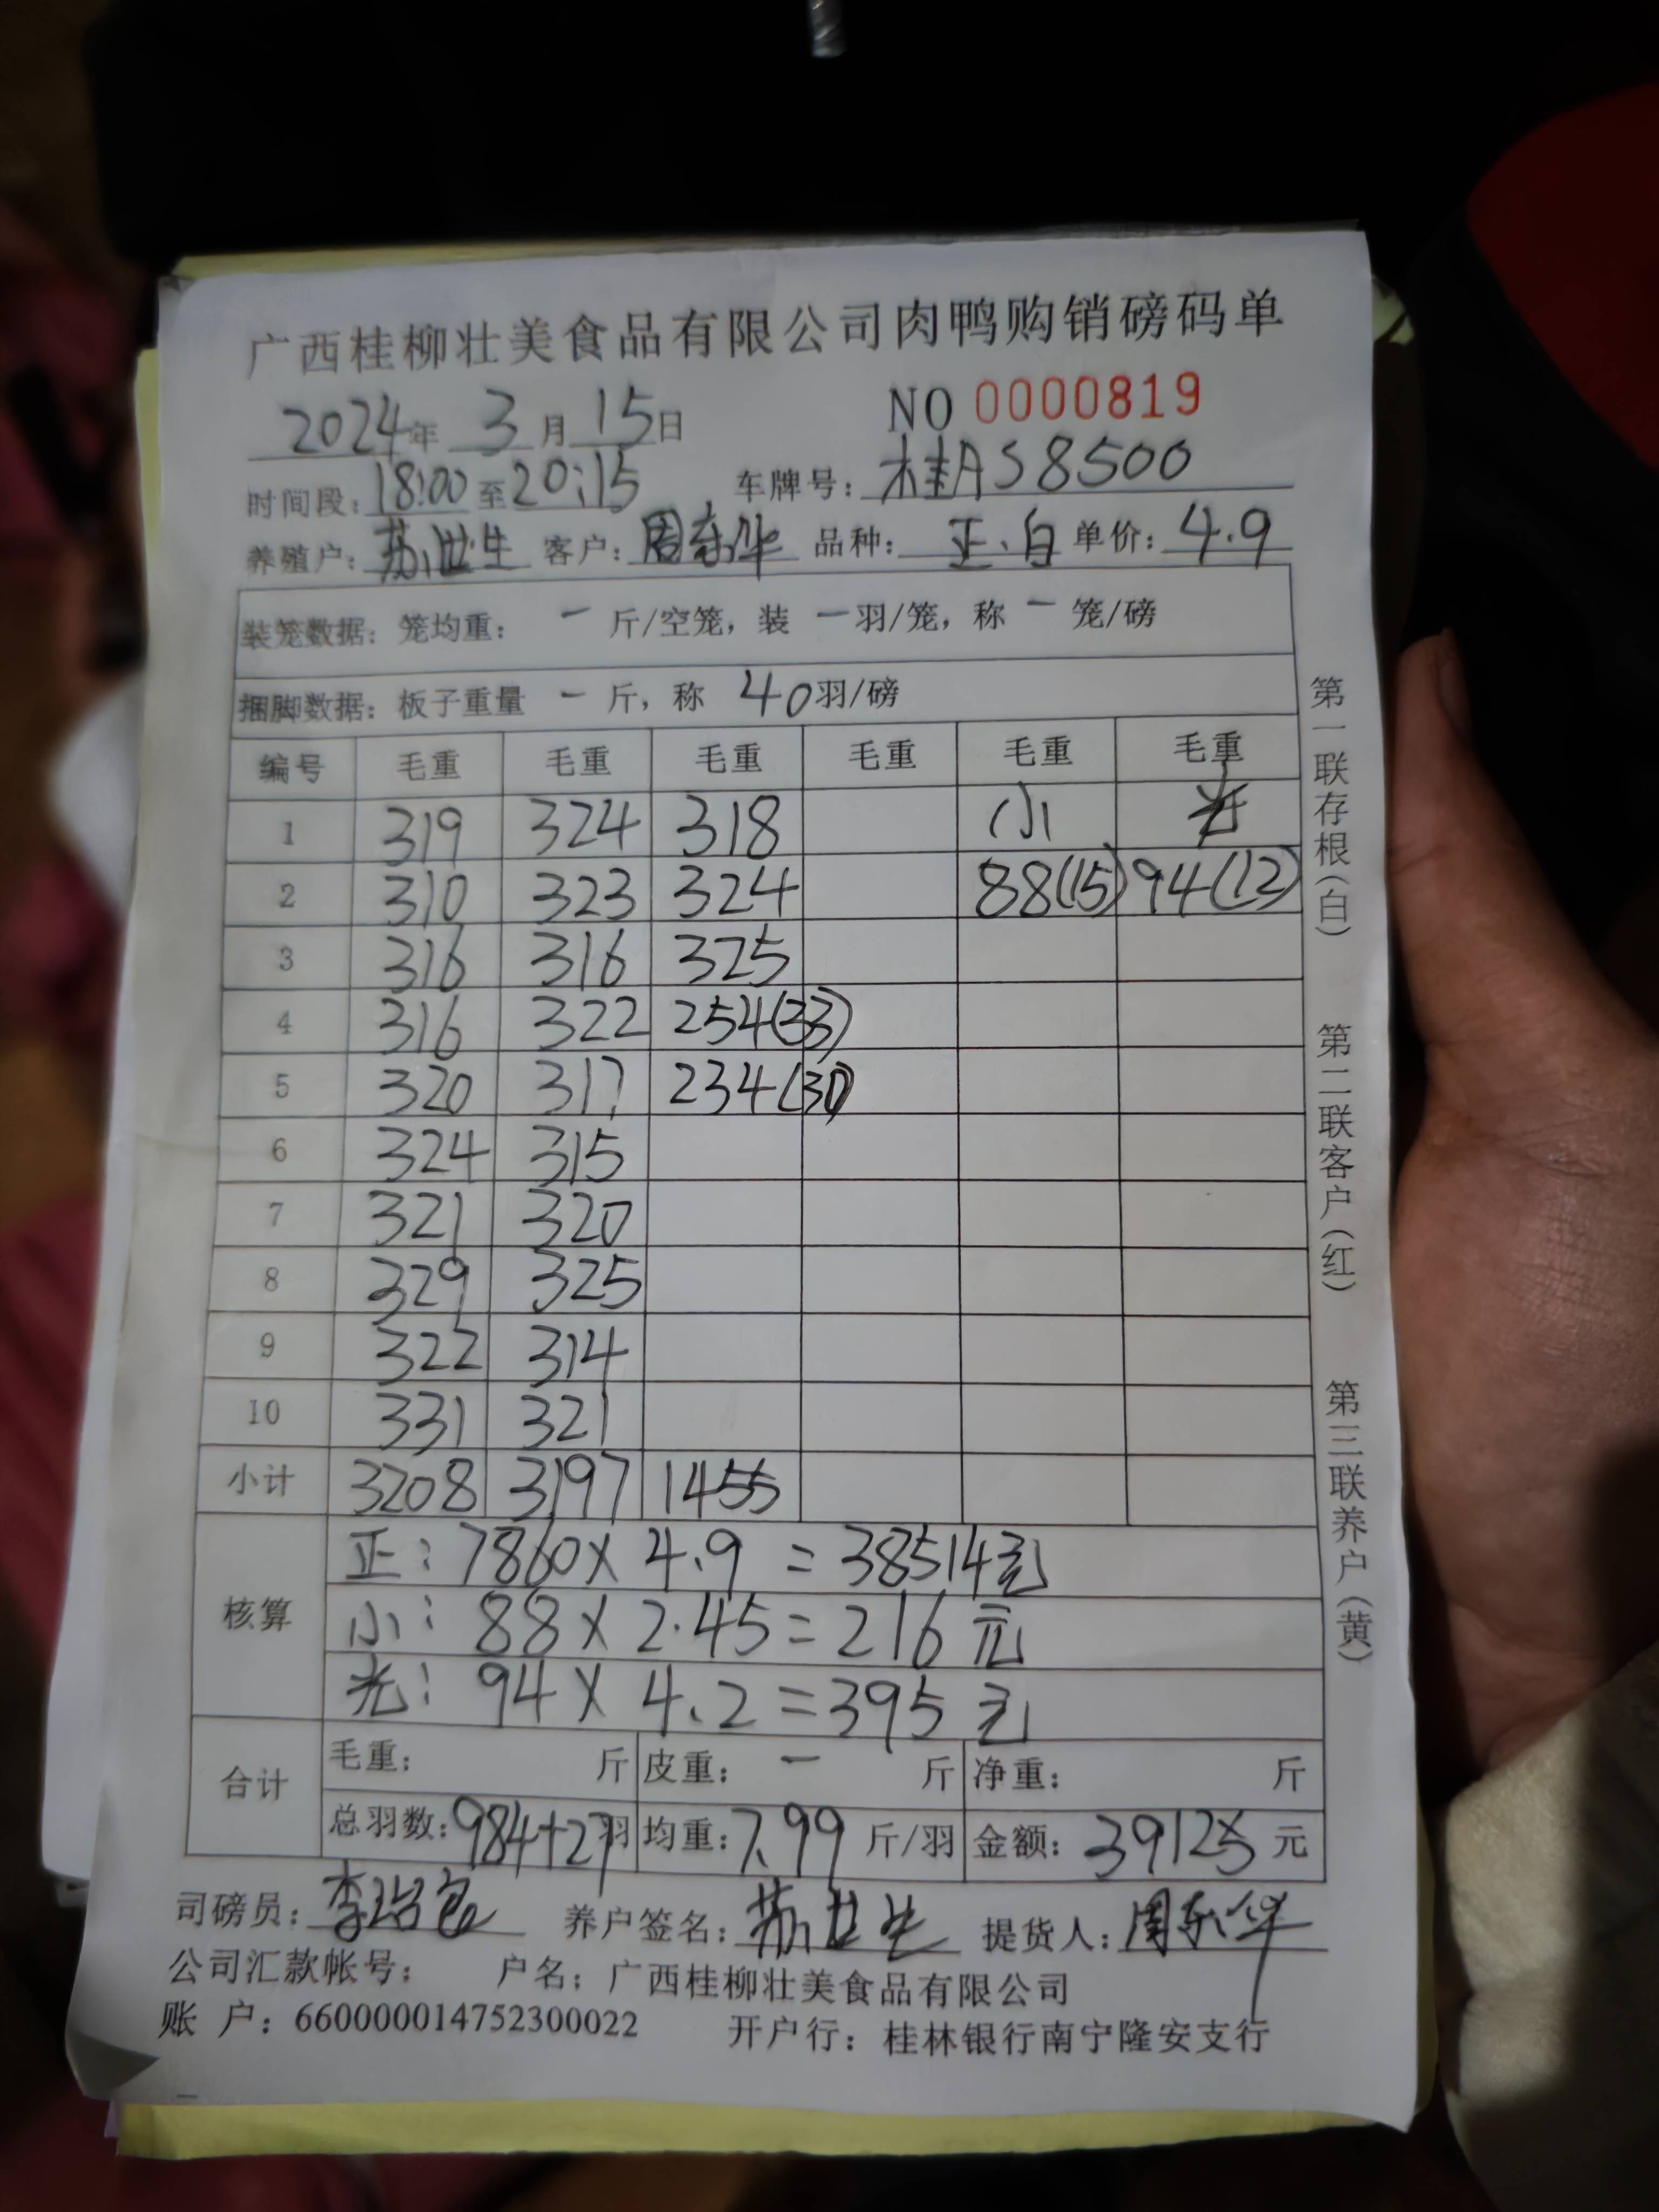 广西桂柳壮美食品有限公司肉鸭购销磅码单
2024年 3月15日 NO 0000819
时间段：18:00至20:15 车牌号：桂AS8500
养殖户：苏世生 客户：周东华 品种：正.白 单价：4.9
装笼数据：笼均重： 一 斤/空笼，装 一羽/笼，称 一 笼/磅
捆脚数据：板子重量 一 斤，称 40羽/磅
编号 毛重 毛重 毛重 毛重 毛重 毛重
1 319 324 318 小 光
2 310 323 324 88(15) 94(12)
3 316 316 325
4 316 322 254(33)
5 320 317 234(31)
6 324 315
7 321 320
8 329 325
9 322 314
10 331 321
小计 3208 3197 1455
核算
正：7860×4.9=38514元
小：88×2.45=216元
光：94×4.2=395元
合计
毛重： 斤 皮重： 一 斤 净重： 斤
总羽数：984+27羽 均重：7.99 斤/羽 金额：39125元
司磅员： 养户签名：苏世生 提货人：周东华
公司汇款帐号： 户名：广西桂柳壮美食品有限公司
账 户：660000014752300022 开户行：桂林银行南宁隆安支行
第一联存根（白） 第二联客户（红） 第三联养户（黄）